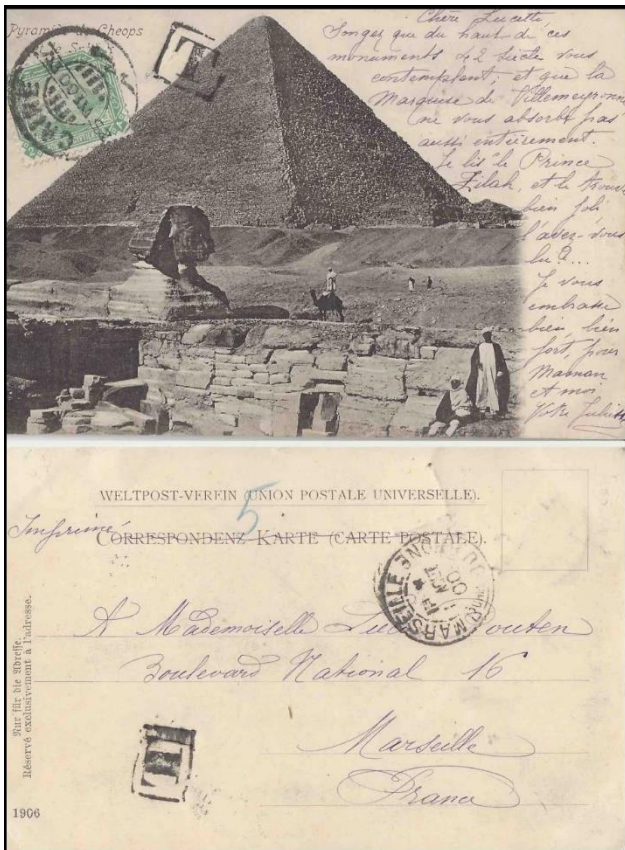 Pyramide de Cheops
CAIRE
T
Chère Lucette
Songez que du haut de ces
monuments 42 siècle vous
contemplent, et que la
Marquise de Villemeyronne
ne vous absorbe pas
aussi entièrement.
Je lis "le Prince
Zilah, et le trouve
bien joli
l'avez-vous
lu ? ...
Je vous
embrasse
bien, bien
fort, pour
Maman
et moi
Votre Juliette
WELTPOST-VEREIN (UNION POSTALE UNIVERSELLE).
5
Imprimé
CORRESPONDENZ-KARTE (CARTE POSTALE).
MARSEILLE
A Mademoiselle
Boulevard National 16
Marseille
France
Nur für die Adresse.
Réservé exclusivement à l'adresse.
T
1906